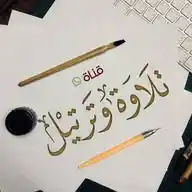 قناة
تلاوة وترتيل